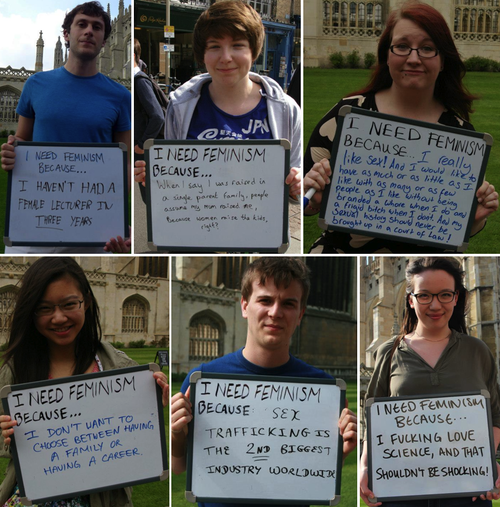 I NEED FEMINISM
BECAUSE...
I HAVEN'T HAD A
FEMALE LECTURER IN
THREE YEARS
JPN
I NEED FEMINISM
BECAUSE...
When I say I was raised in
a single parent family, people
assume my mum raised me,
because women raise the kids,
right?
I NEED FEMINISM
BECAUSE... I really
like sex! And I would like to
have as much or as little as I
like with as many or as few
people as I like without being
branded a whore when I do and
a frigid bitch when I don't. And my
sexual history should never be
brought up in a court of law!
I NEED FEMINISM
BECAUSE...
I DON'T WANT TO
CHOOSE BETWEEN HAVING
A FAMILY OR
HAVING A CAREER.
I NEED FEMINISM
BECAUSE SEX
TRAFFICKING IS
THE 2ND BIGGEST
INDUSTRY WORLDWIDE
I NEED FEMINISM
BECAUSE...
I FUCKING LOVE
SCIENCE, AND THAT
SHOULDN'T BE SHOCKING!